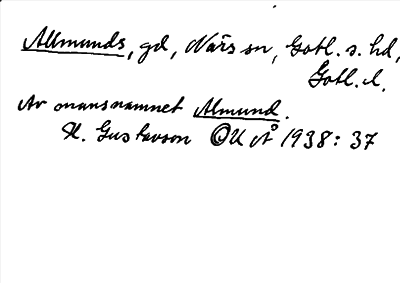 Allmunds, gd, När sn, Gotl. s. hd,
Gotl. l.
Av mansnamnet Almund.
H. Gustavson OUÅ 1938: 37